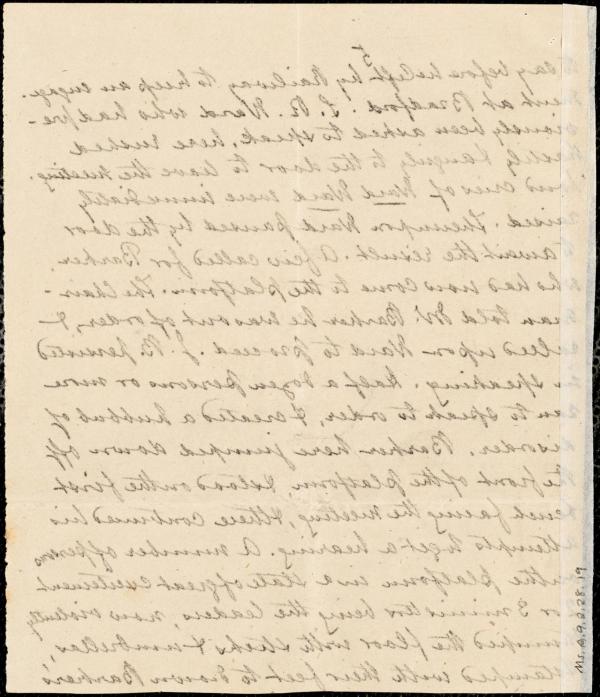 5
day before he left by Railway to keep an engage-
ment at Bradford. S. R. Ward who had pre-
viously been asked to speak, here rushed
hastily & angrily to the door to leave the meeting.
Loud cries of Ward Ward were immediately
raised. Thereupon Ward paused by the door
to await the result. A few called for Barker
who had now come to the platform. The Chair-
man told Mr. Barker he was out of order, &
called upon Ward to proceed. J. B. persisted
in speaking. Half a dozen persons or more
ran to speak to order, & created a hubbub of
disorder. Barker here jumped down off
the front of the platform, & stood on the first
bench facing the meeting, & there continued his
attempts to get a hearing. A number of persons
on the platform in a state of great excitement
2 or 3 ministers being the leaders, now violently
thumped the floor with sticks & umbrellas,
stamped with their feet to drown Barker's
Ms.A.9.2.28.19